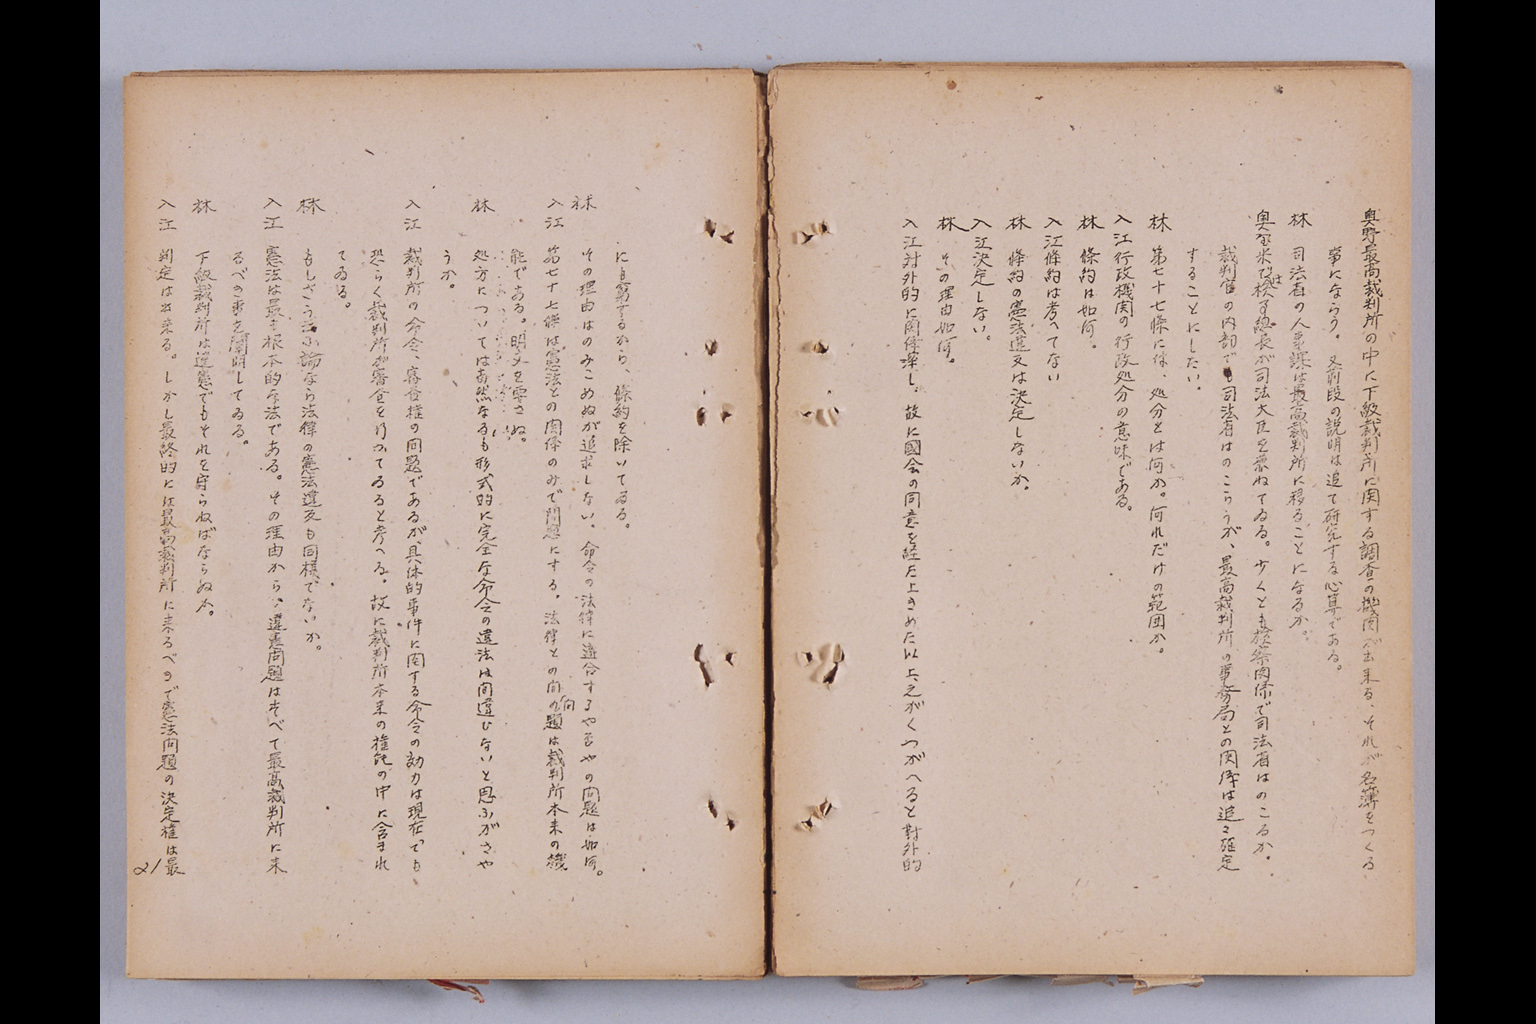 奥野最高裁判所の中に下級裁判所に関する調査の機関が出来る、それが名簿をつくる
事にならう。又前段の説明は追て研究する心算である。
林 司法省の人事課は最高裁判所に移ることになるか。
奥野米では検事総長が司法大臣を兼ねてゐる。少くとも検察関係で司法省はのこるか。
裁判官の内部でも司法省はのこらうが、最高裁判所の事務局との関係は追々確定
することにしたい。
林 第七十七條には、処分とは何か。何れだけの範囲か。
入江行政機関の行政処分の意味である。
林 條約は如何。
入江條約は考へてない
林 條約の憲法違反は決定しないか。
入江決定しない。
林 その理由如何。
入江対外的に関係深し、故に國会の同意を経た上きめた以上、之がくつがへると対外的
にも窮するから、條約を除いてゐる。
林 その理由はのみこめぬが追求しない。命令の法律に適合するや否やの問題は如何。
入江 第七十七條は憲法との関係のみで問題にする。法律との間の問題は裁判所本来の機
能である。明文を要さぬ。
林 処方については当然なるも形式的に完全な命令の違法は間違ひないと思ふがさや
うか。
入江 裁判所の命令、審査権の問題であるが、具体的事件に関する命令の効力は現在でも
恐らく裁判所が審査を行つてゐると考へる。故に裁判所本来の権能の中に含まれ
てゐる。
林 もしさう云ふ論なら法律の憲法違反も同様でないか。
入江 憲法は最も根本的な法である。その理由から、違憲問題はすべて最高裁判所に来
るべき事を闡明してゐる。
林 下級裁判所は違憲でもそれを守らねばならぬか。
入江 判定は出来る。しかし最終的には最高裁判所に来るべきで憲法問題の決定権は最
21